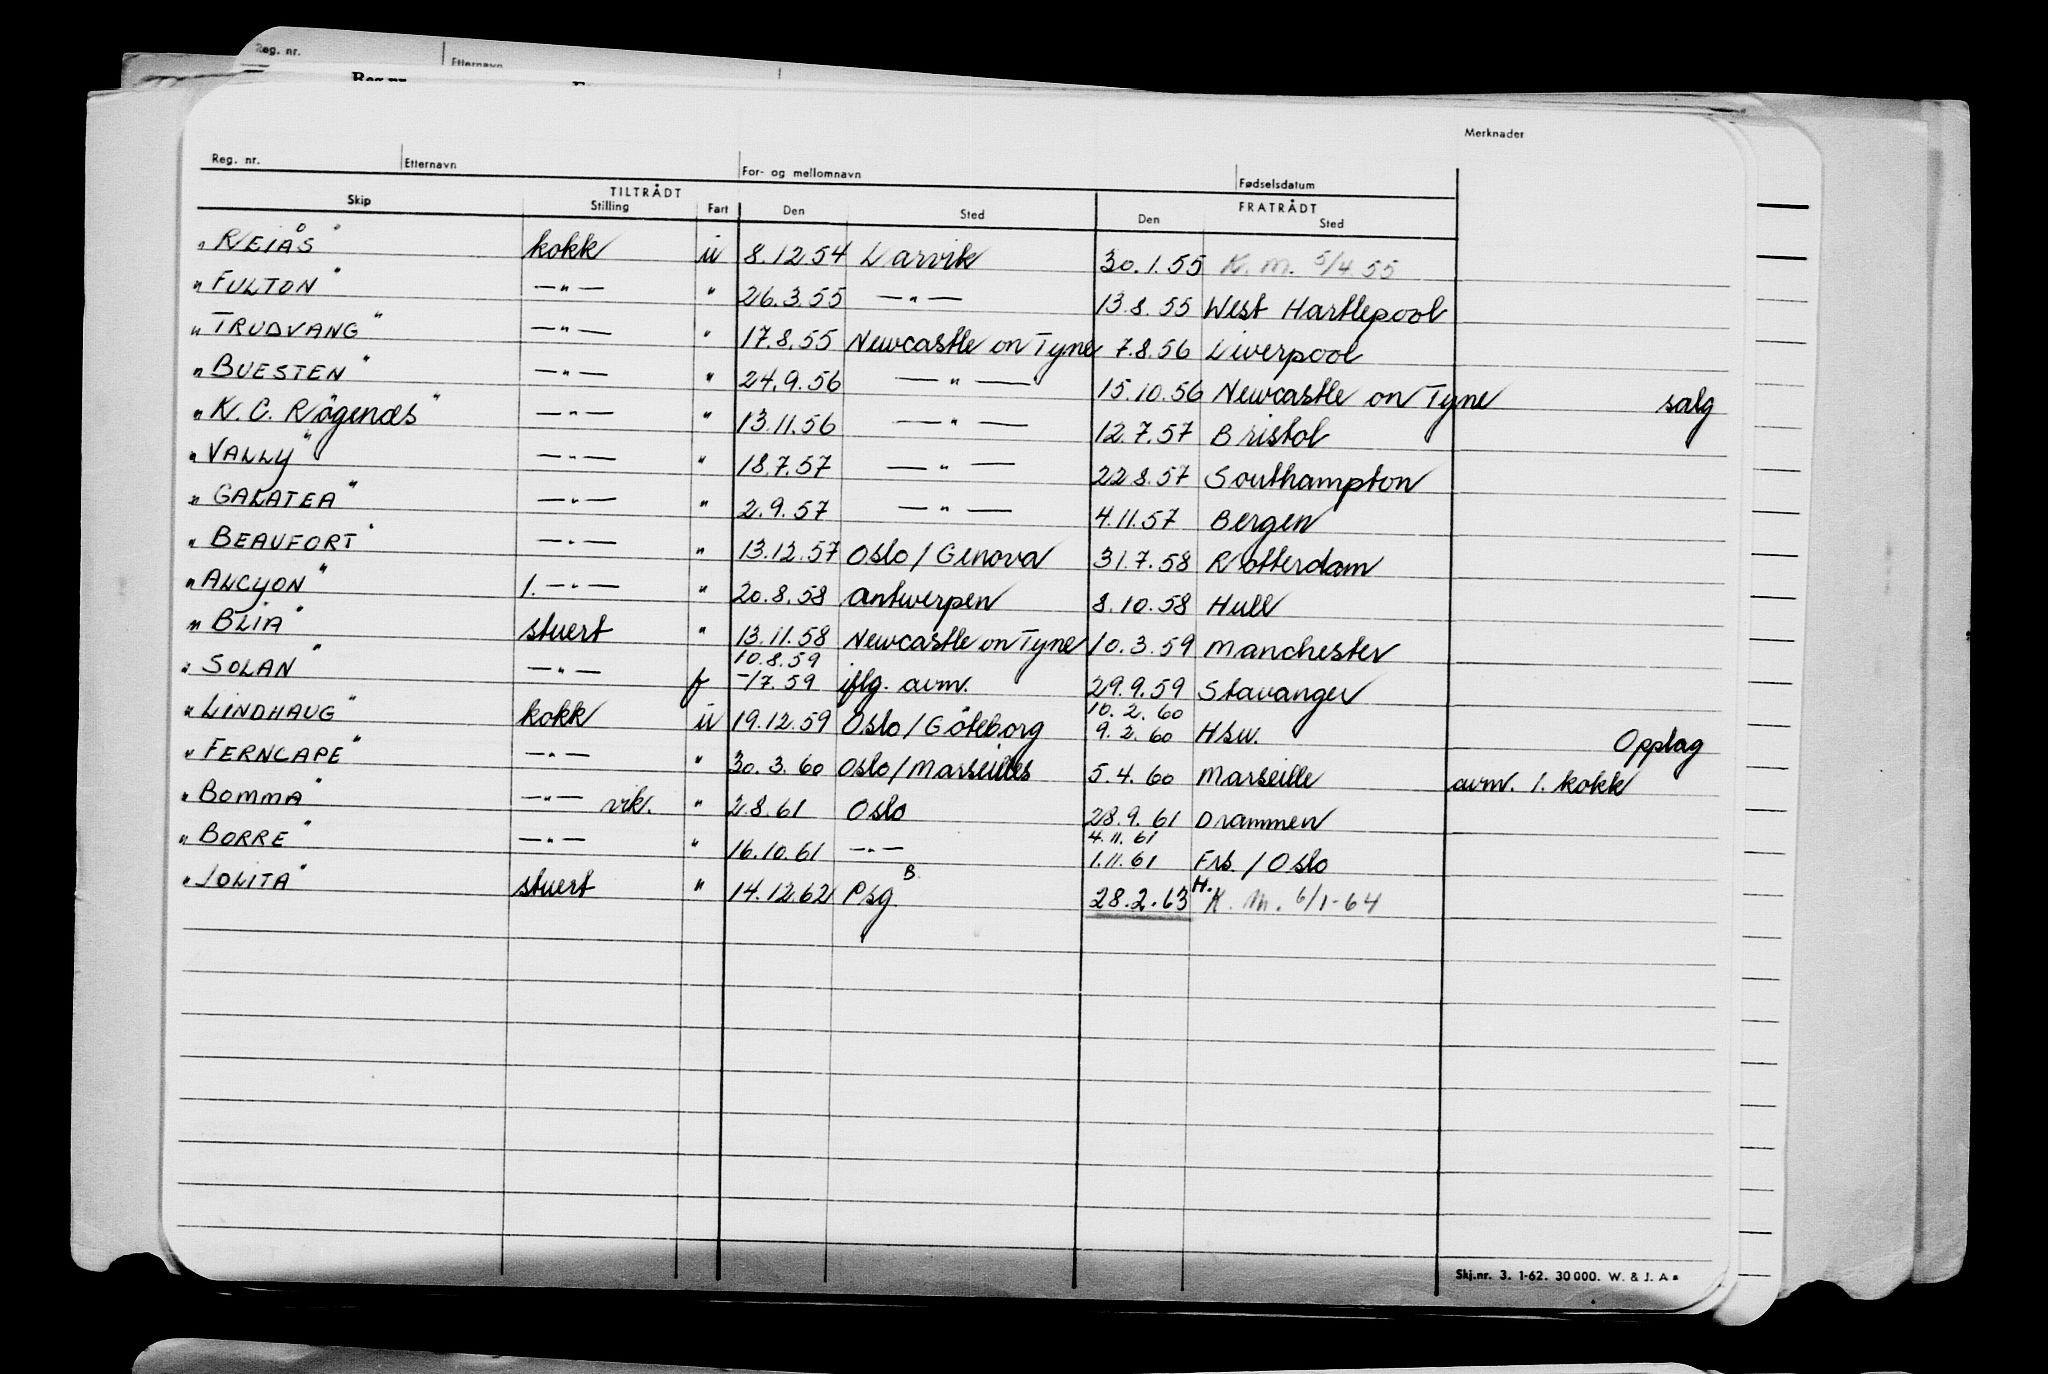 Reg. nr. Etternavn
Reg.nr.
Merknader
Reg. nr. Etternavn For- og mellomnavn Fødselsdatum
TILTRÅDT FRATRÅDT
Skip Stilling Fart Den Sted Den Sted
"REIÅS" kokk u 8.12.54 Larvik 30.1.55 K.m. 5/4 55
"FULTON" —"— " 26.3.55 —"— 13.8.55 West Hartlepool
"TRUDVANG" —"— " 17.8.55 Newcastle on Tyne 7.8.56 Liverpool
"BUESTEN" —"— " 24.9.56 —"— 15.10.56 Newcastle on Tyne salg
"K. C. Rögenæs" —"— " 13.11.56 —"— 12.7.57 Bristol
"VALLY" —"— " 18.7.57 —"— 22.8.57 Southampton
"GALATEA" —"— " 2.9.57 —"— 4.11.57 Bergen
"BEAUFORT" —"— " 13.12.57 Oslo/Genova 31.7.58 Rotterdam
"ALCYON" 1.—"— " 20.8.58 Antwerpen 8.10.58 Hull
"BLIA" stuert " 13.11.58 Newcastle on Tyne 10.3.59 Manchester
10.8.59
"SOLAN" —"— f -17.59 iflg. avm. 29.9.59 Stavanger
10.2.60
"LINDHAUG" kokk u 19.12.59 Oslo/Göteborg 9.2.60 Hsw. Opplag
"FERNCAPE" —"— " 30.3.60 Oslo/Marseilles 5.4.60 Marseille avm. 1. kokk
"BOMMA" —"— vik. " 2.8.61 Oslo 28.9.61 Drammen
4.11.61
"BORRE" —"— " 16.10.61 —"— 1.11.61 Frs./Oslo
"LOLITA" stuert " 14.12.62 Psg. B. 28.2.63 H. K.m. 6/1-64
Skj.nr. 3. 1-62. 30000. W. & J. A s